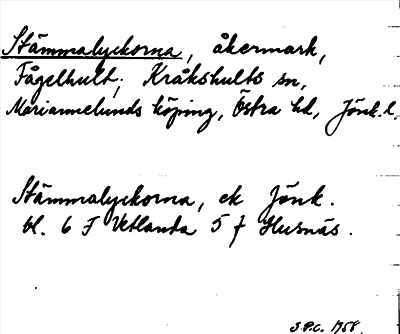 Stämmalyckorna, åkermark,
Fågelhult, Kråkshults sn,
Mariannelunds köping, Östra hd, Jönk. l.
Stämmalyckorna, ek Jönk.
bl. 6 F Vetlanda 5 f Husnäs.
S.P.C. 1958.